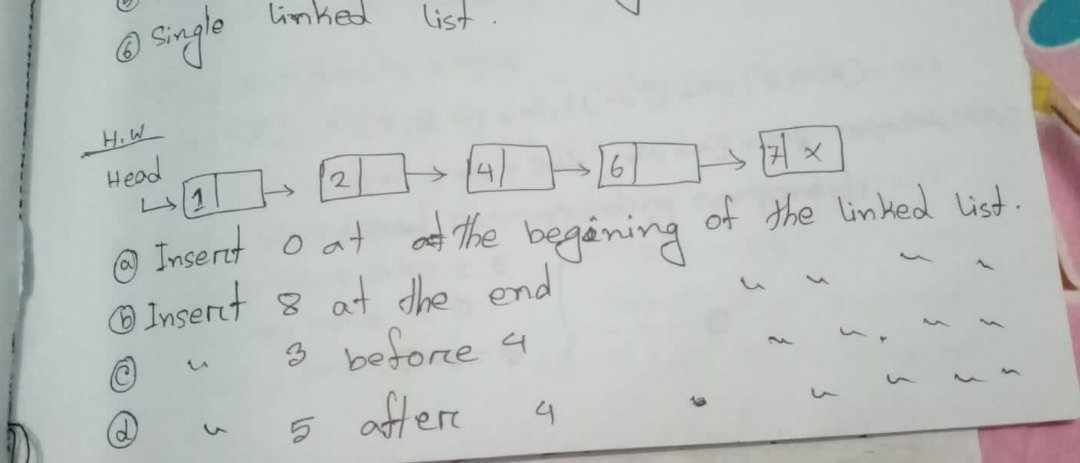 ⑥ Single linked list.
H.W
Head
1 → 2 → 4 → 6 → 7 X
ⓐ Insert 0 at the begining of the linked list.
ⓑ Insert 8 at the end " " " "
ⓒ " 3 before 4 " " " "
ⓓ " 5 after 4 " " " "